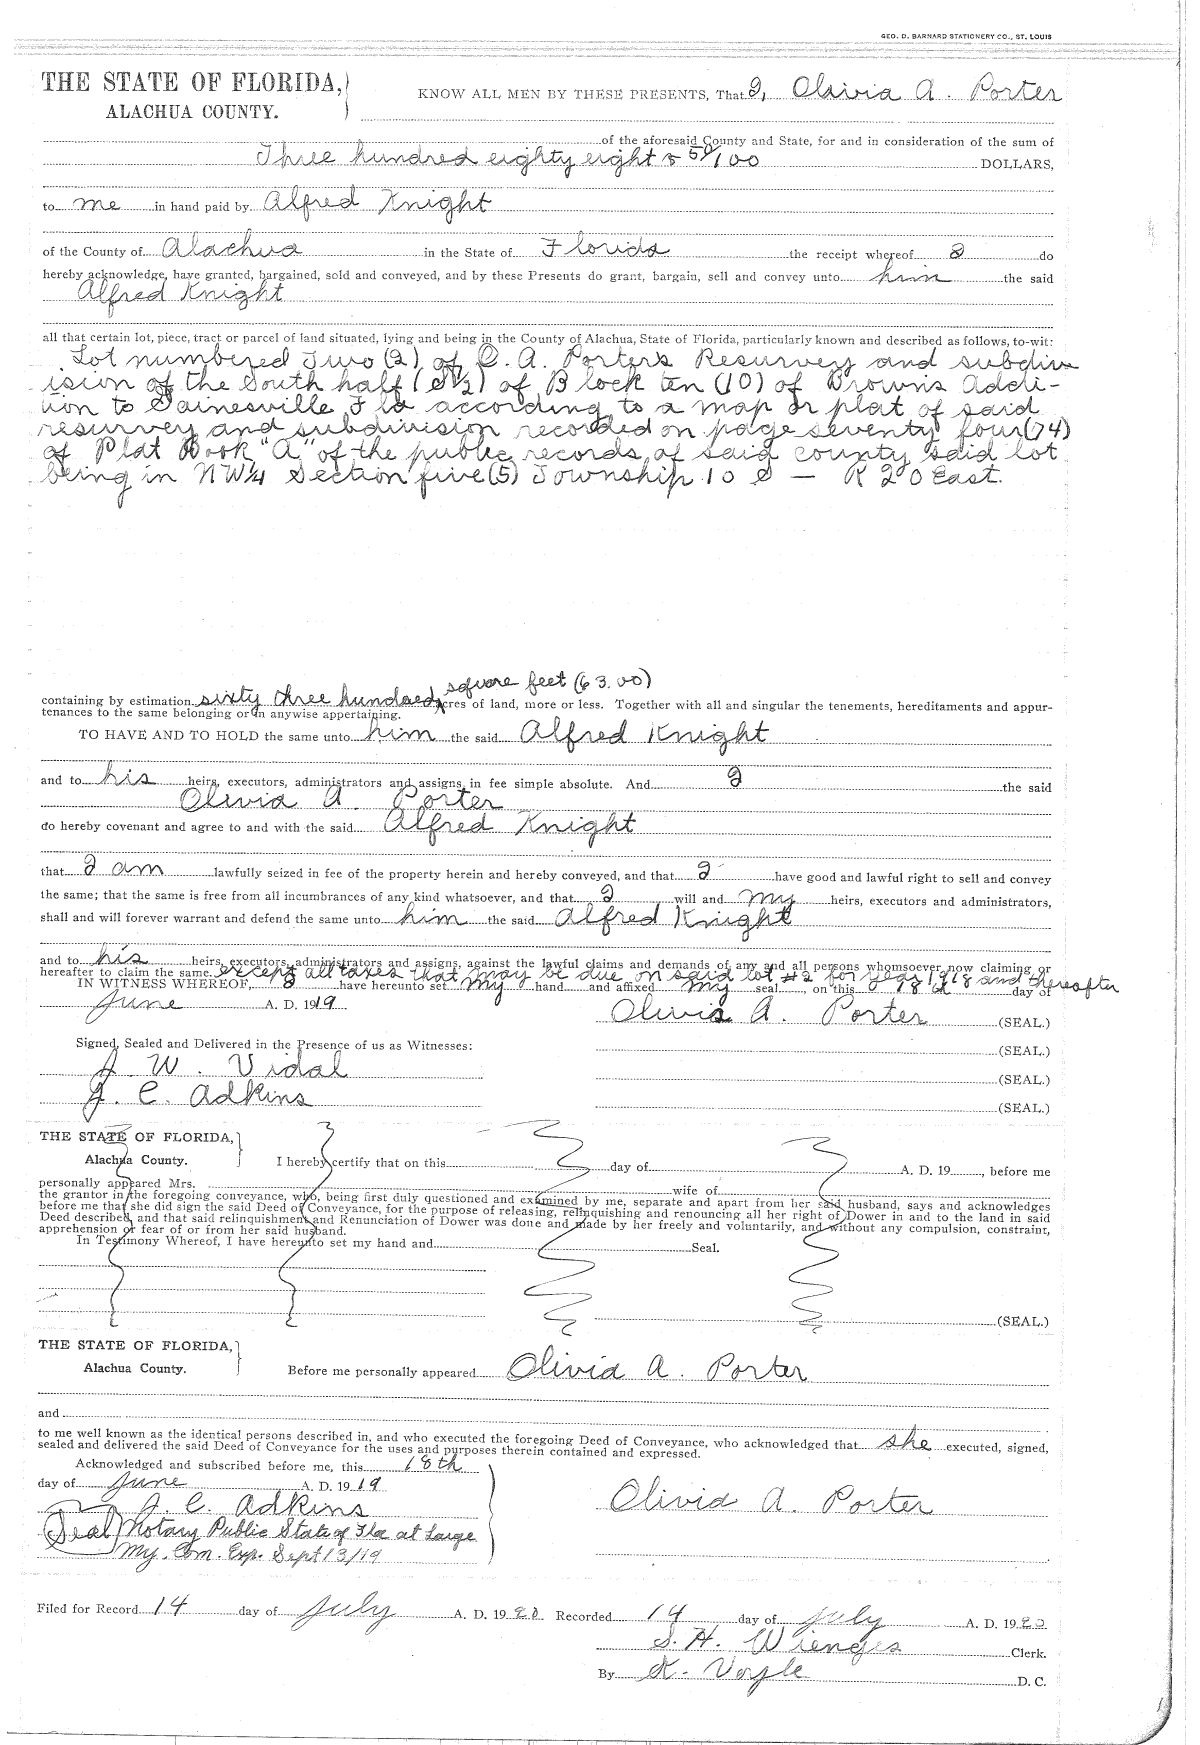 GEO. D. BARNARD STATIONERY CO., ST. LOUIS
THE STATE OF FLORIDA,
ALACHUA COUNTY.
KNOW ALL MEN BY THESE PRESENTS, That I, Olivia A. Porter
of the aforesaid County and State, for and in consideration of the sum of
Three hundred eighty eight & 50/100 DOLLARS,
to me in hand paid by Alfred Knight
of the County of Alachua in the State of Florida the receipt whereof I do
hereby acknowledge, have granted, bargained, sold and conveyed, and by these Presents do grant, bargain, sell and convey unto him the said
Alfred Knight
all that certain lot, piece, tract or parcel of land situated, lying and being in the County of Alachua, State of Florida, particularly known and described as follows, to-wit:
Lot numbered Two (2) of O. A. Porter's Resurvey and subdiv
ision of the South half (S½) of Block ten (10) of Brown's Addi-
tion to Gainesville Fla according to a map or plat of said
resurvey and subdivision recorded on page seventy four (74)
of Plat Book "A" of the public records of said county said lot
being in NW¼ Section five (5) Township 10 S — R 20 East.
square feet (63.00)
containing by estimation sixty three hundred acres of land, more or less. Together with all and singular the tenements, hereditaments and appur-
tenances to the same belonging or in anywise appertaining.
TO HAVE AND TO HOLD the same unto him the said Alfred Knight
and to his heirs, executors, administrators and assigns, in fee simple absolute. And I the said
Olivia A. Porter
do hereby covenant and agree to and with the said Alfred Knight
that I am lawfully seized in fee of the property herein and hereby conveyed, and that I have good and lawful right to sell and convey
the same; that the same is free from all incumbrances of any kind whatsoever, and that I will and my heirs, executors and administrators,
shall and will forever warrant and defend the same unto him the said Alfred Knight
and to his heirs, executors, administrators and assigns, against the lawful claims and demands of any and all persons whomsoever now claiming or
hereafter to claim the same. except all taxes that may be due on said lot #2 for year 1918 and thereafter
IN WITNESS WHEREOF, I have hereunto set my hand and affixed my seal, on this 18th day of
June A. D. 1919
Olivia A. Porter (SEAL.)
Signed, Sealed and Delivered in the Presence of us as Witnesses:
(SEAL.)
J. W. Vidal
(SEAL.)
J. C. Adkins
(SEAL.)
THE STATE OF FLORIDA,
Alachua County.
I hereby certify that on this day of A. D. 19, before me
personally appeared Mrs. wife of
the grantor in the foregoing conveyance, who, being first duly questioned and examined by me, separate and apart from her said husband, says and acknowledges
before me that she did sign the said Deed of Conveyance, for the purpose of releasing, relinquishing and renouncing all her right of Dower in and to the land in said
Deed described, and that said relinquishment and Renunciation of Dower was done and made by her freely and voluntarily, and without any compulsion, constraint,
apprehension or fear of or from her said husband.
In Testimony Whereof, I have hereunto set my hand and Seal.
(SEAL.)
THE STATE OF FLORIDA,
Alachua County.
Before me personally appeared Olivia A. Porter
and
to me well known as the identical persons described in, and who executed the foregoing Deed of Conveyance, who acknowledged that she executed, signed,
sealed and delivered the said Deed of Conveyance for the uses and purposes therein contained and expressed.
Acknowledged and subscribed before me, this 18th
day of June A. D. 1919
J. C. Adkins
Olivia A. Porter
Seal Notary Public State of Fla at Large
My. Com. Exp. Sept 13/19
Filed for Record 14 day of July A. D. 1920 Recorded 14 day of July A. D. 1920
S. H. Wienges Clerk.
By K. Vogle D. C.